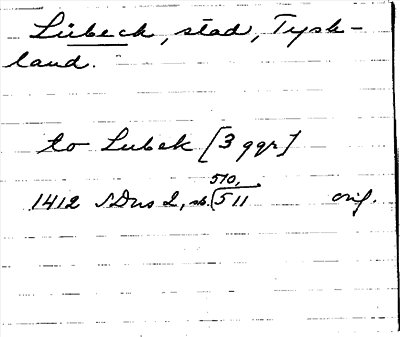 Lübeck, stad, Tysk-
land.
to Lubek [3 ggr]
510,
1412 SDns 2, sb. 511 orig.